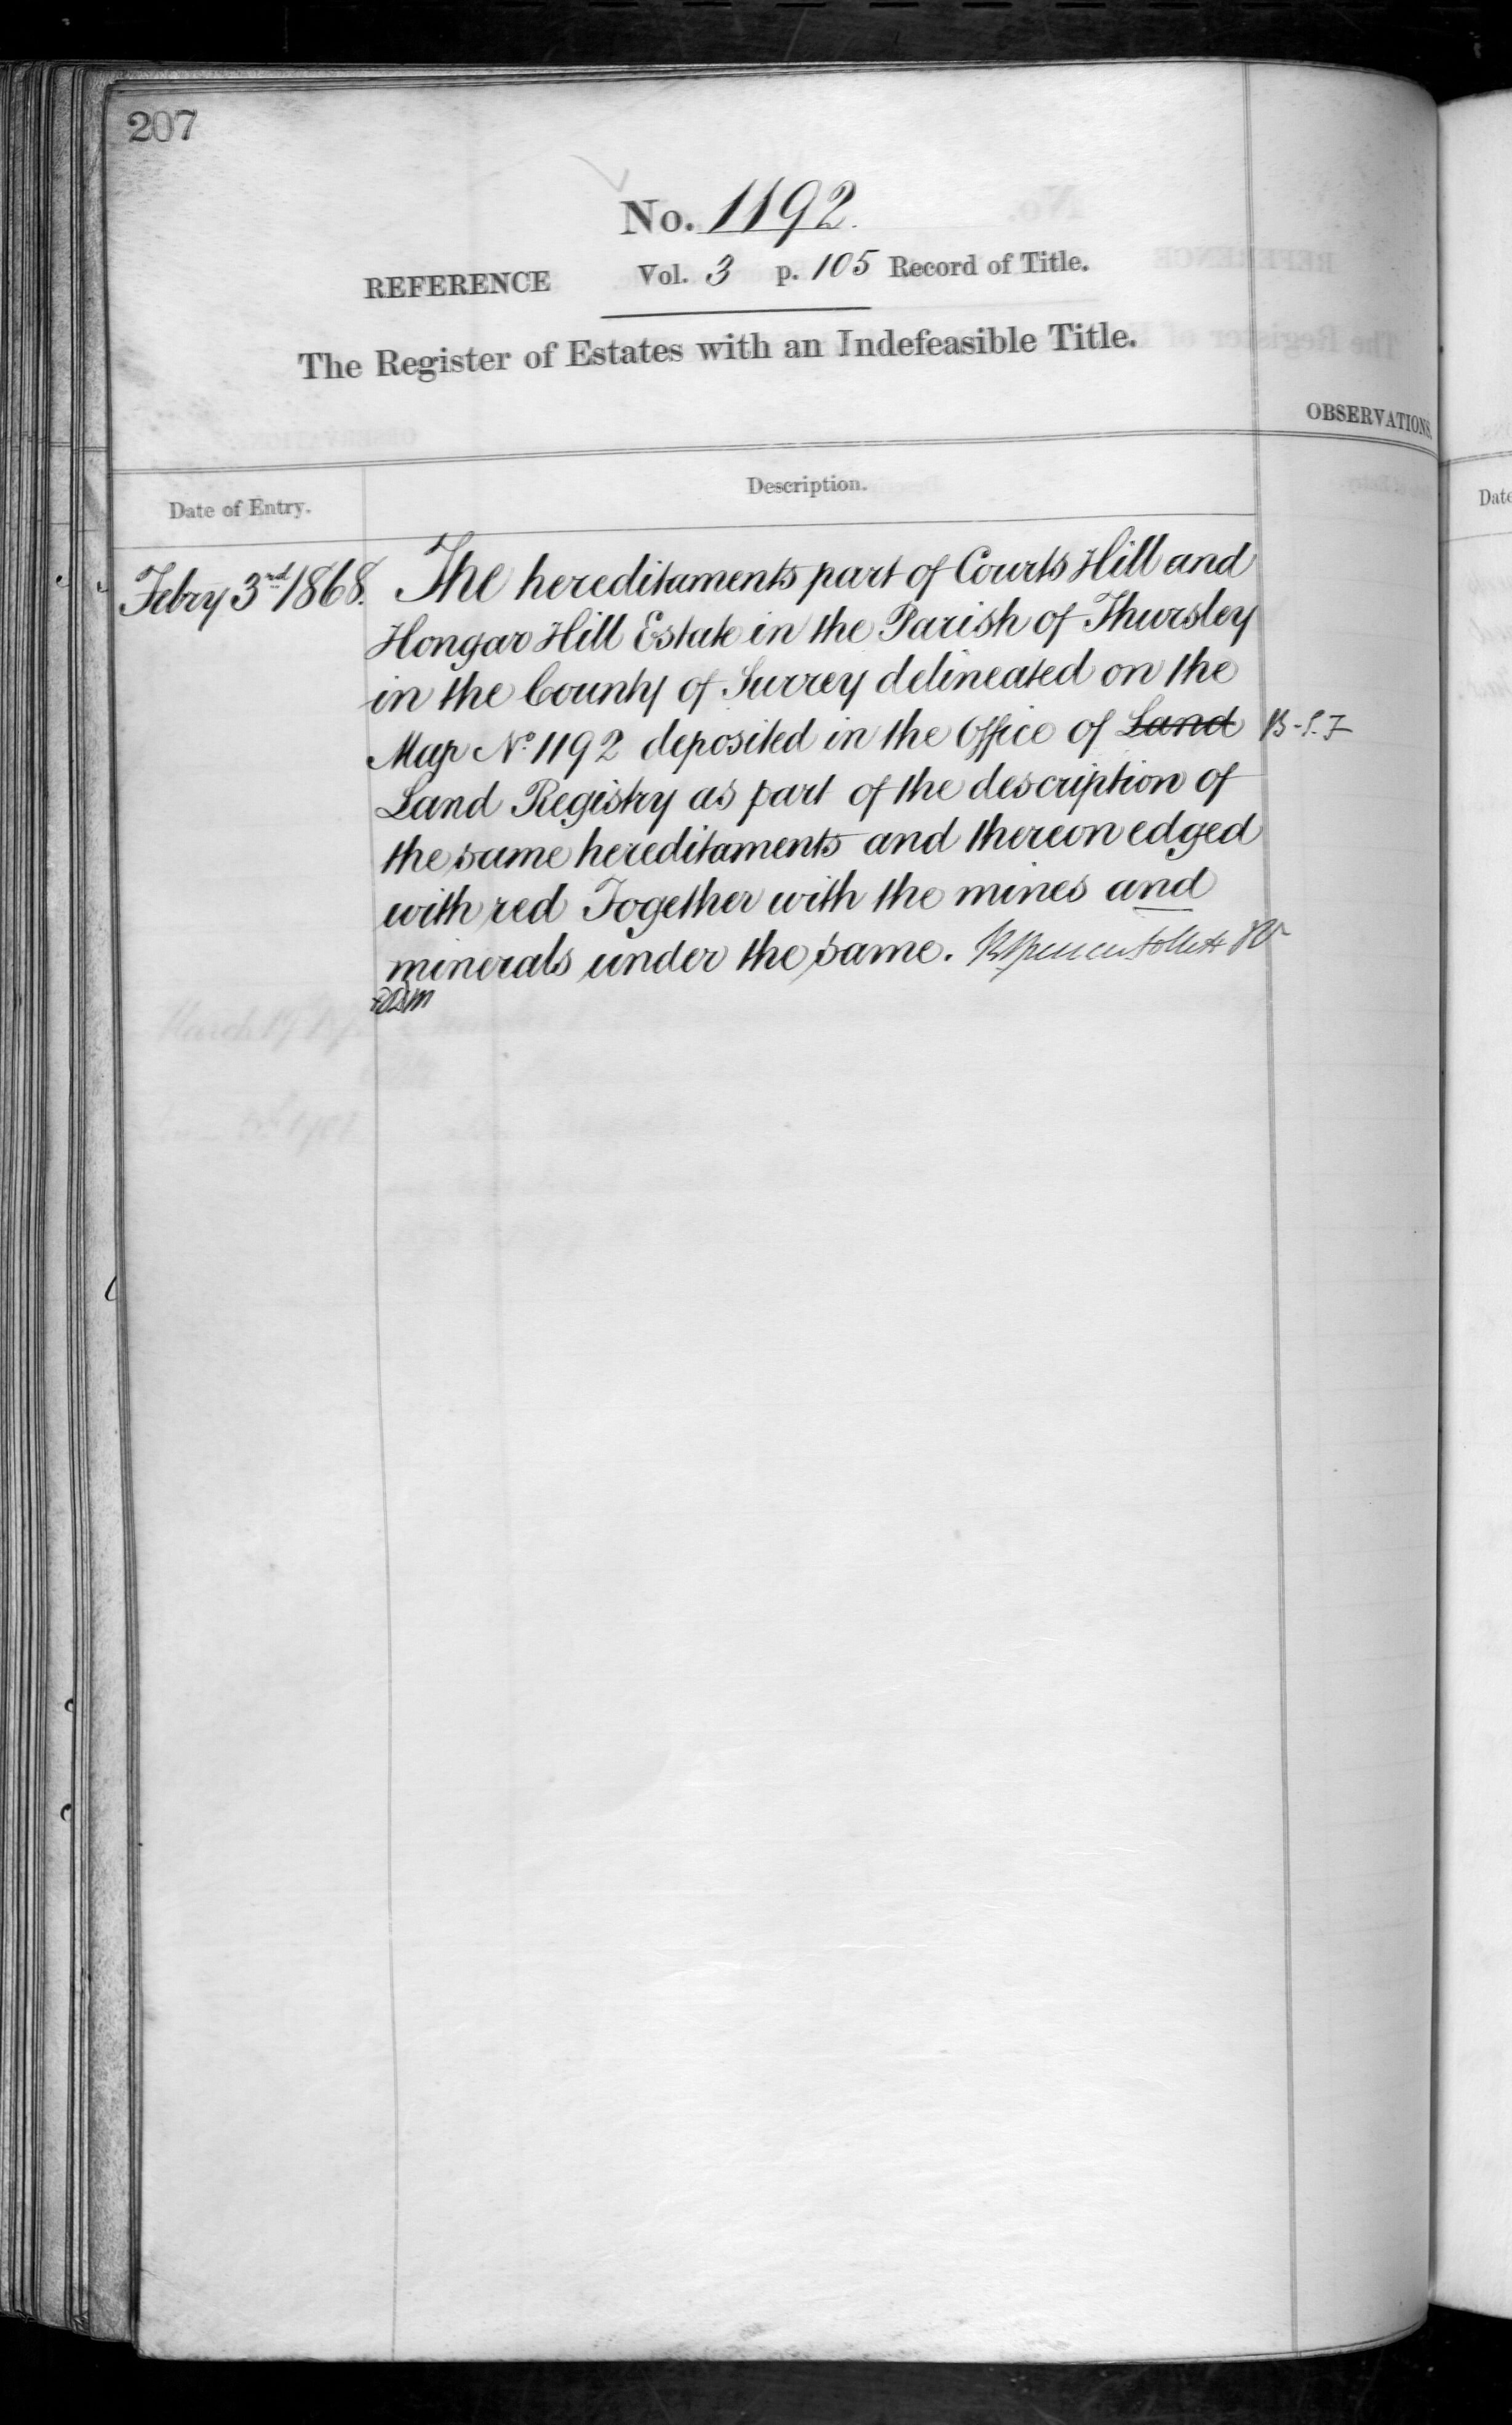 207
No. 1192.
REFERENCE Vol. 3 p. 105 Record of Title.
The Register of Estates with an Indefeasible Title.
OBSERVATIONS.
Date of Entry.
Description.
Febry 3rd 1868. The hereditaments part of Courts Hill and
Hongar Hill Estate in the Parish of Thursley
in the County of Surrey delineated on the
Map No. 1192 deposited in the Office of Land B.S.F
Land Registry as part of the description of
the same hereditaments and thereon edged
with red Together with the mines and
minerals under the same.
Date